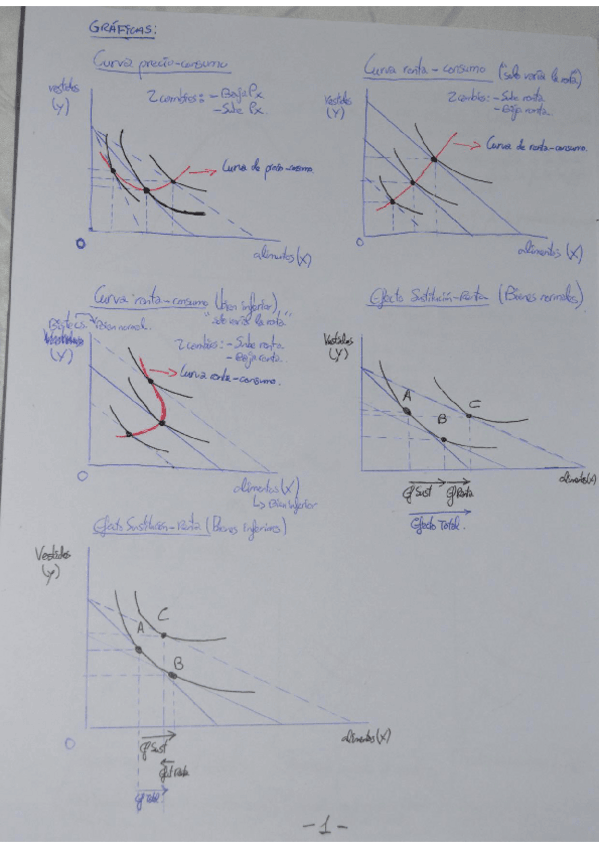 GRÁFICAS:
Curva precio-consumo
Vestidos
(Y)
2 cambios: - Baja Px
- Sube Px.
Curva de precio-consumo
0
alimentos (X)
Curva renta-consumo ("solo varía la renta")
Vestidos
(Y)
2 cambios: - Sube renta
- Baja renta.
Curva de renta-consumo.
0
alimentos (X)
Curva renta-consumo (bien inferior),
"solo varía la renta"
bien normal.
(Y)
2 cambios: - Sube renta.
- Baja renta.
Curva renta-consumo.
0
alimentos (X)
↳ Bien inferior
Efecto Sustitución-Renta (Bienes normales).
Vestidos
(Y)
A
B
C
alimentos (X)
Ef Sust
Ef Renta
Efecto Total.
Efecto Sustitución-Renta (Bienes Inferiores)
Vestidos
(Y)
C
A
B
0
alimentos (X)
Ef Sust
Ef Renta
Ef Total.
- 1 -